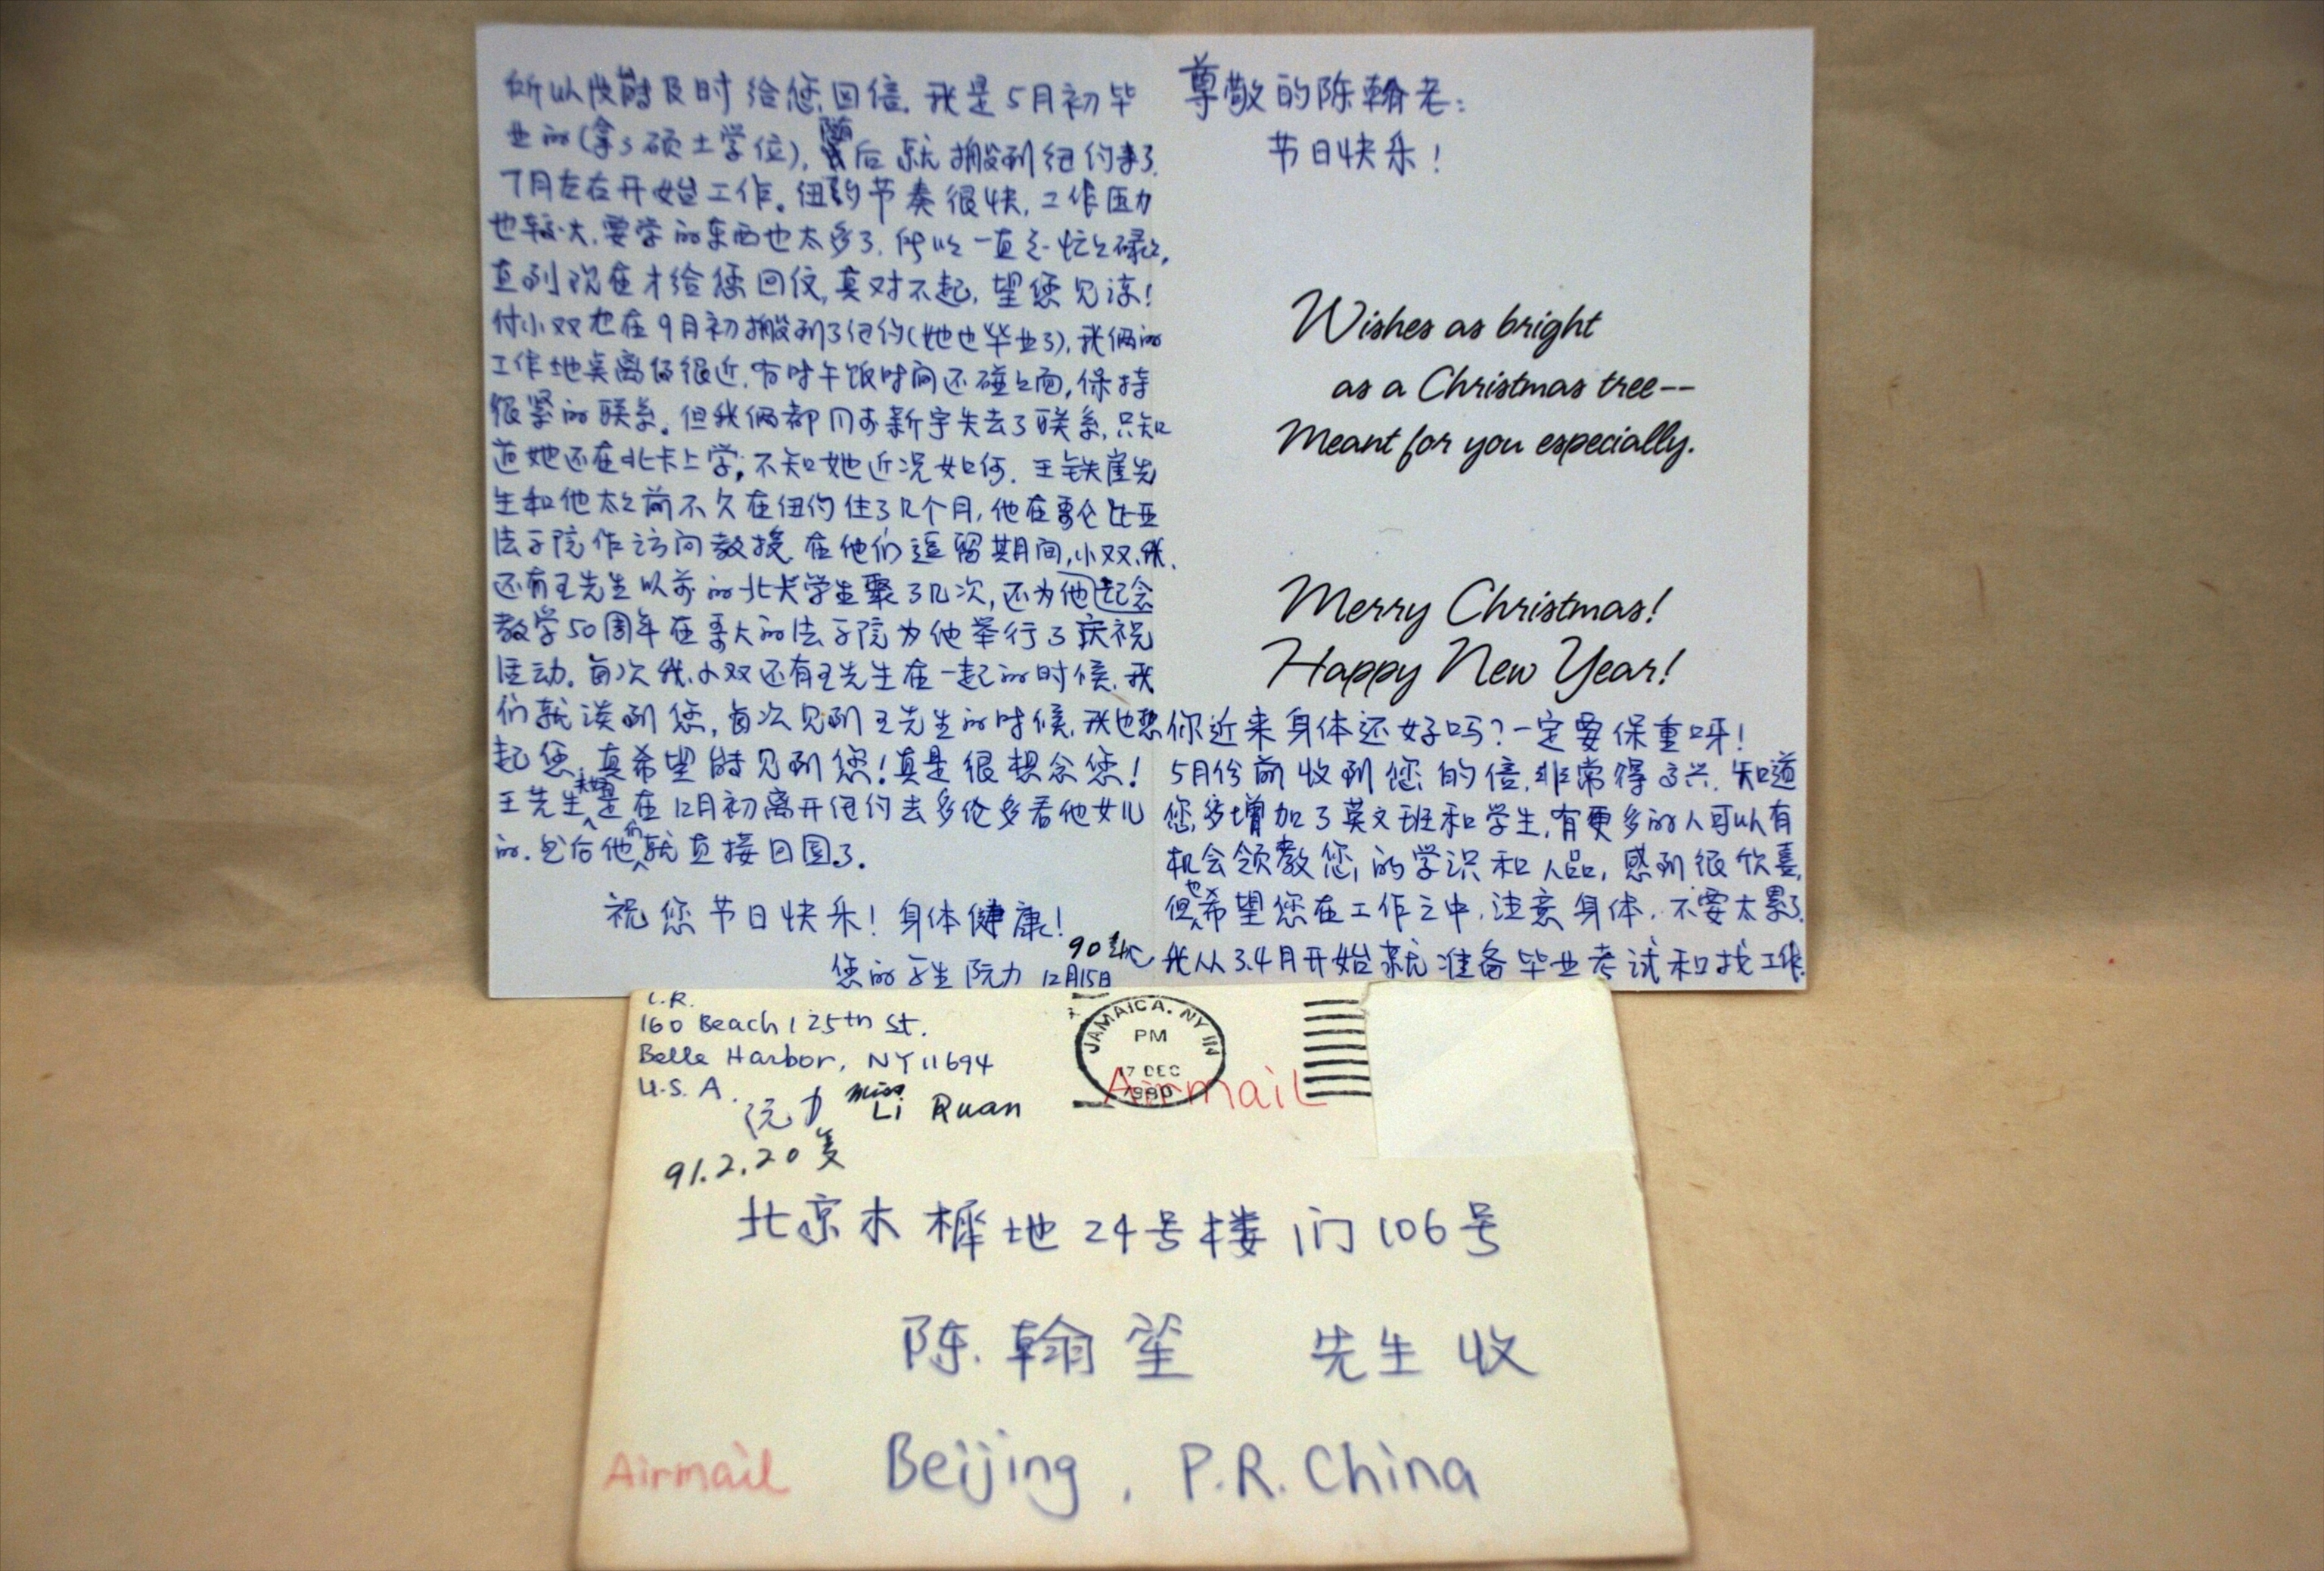 尊敬的陈翰老：
节日快乐！
Wishes as bright
as a Christmas tree--
Meant for you especially.
Merry Christmas!
Happy New Year!
你近来身体还好吗？一定要保重呀！
5月份前收到您的信，非常得高兴．知道
您多增加了英文班和学生，有更多的人可以有
机会领教您的学识和人品，感到很欣喜，
但也希望您在工作之中，注意身体，不要太累了．
我从3.4月开始就准备毕业考试和找工作
所以没能及时给您回信．我是5月初毕
业的（拿了硕士学位），随后就搬到纽约来了．
7月左右开始工作。纽约节奏很快，工作压力
也较大，要学的东西也太多了．所以一直忙忙碌碌，
直到现在才给您回信，真对不起，望您见谅！
付小双也在9月初搬到了纽约（她也毕业了），我俩的
工作地点离得很近，有时午饭时间还碰碰面，保持
很紧的联系。但我俩都同于新宇失去了联系，只知
道她还在北卡上学，不知她近况如何．王铁崖先
生和他太太前不久在纽约住了几个月，他在哥伦比亚
法学院作访问教授．在他们逗留期间，小双、我、
还有王先生以前的北大学生聚了几次，还为他纪念
教学50周年在哥大的法学院为他举行了庆祝
活动。每次我、小双还有王先生在一起的时候，我
们就谈到您，每次见到王先生的时候，我也想
起您．真希望能见到您！真是很想念您！
王先生夫妇是在12月初离开纽约去多伦多看他女儿
的．然后他们就直接回国了．
祝您节日快乐！身体健康！
您的学生 阮力 12月15日
90
L.R.
160 Beach 125th St.
Belle Harbor, NY 11694
U.S.A.
阮力 Miss Li Ruan
91.2.20 复
JAMAICA, NY
PM
17 DEC
1990
Airmail
北京木樨地24号楼1门106号
陈翰笙 先生收
Airmail
Beijing, P.R. China